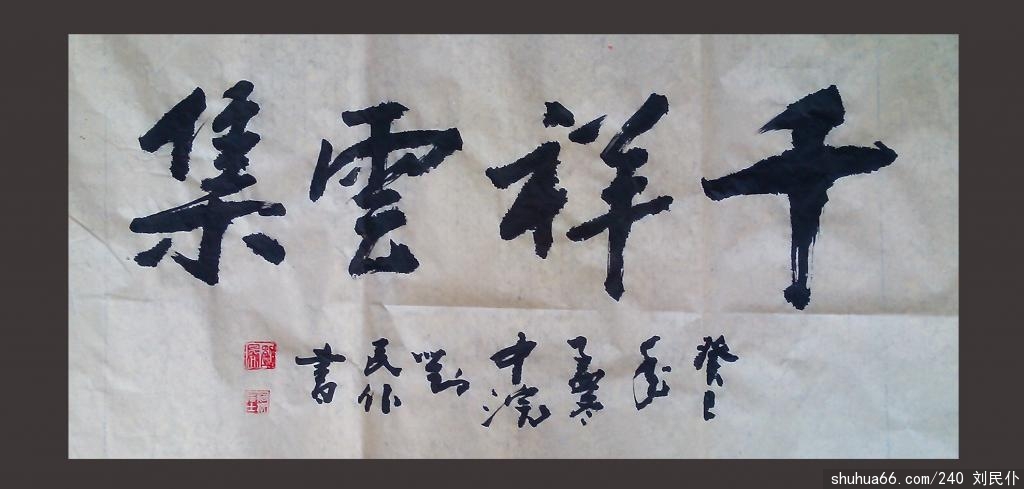 千祥雲集
癸巳年孟冬中浣劉民仆書
shuhua66.com/240 刘民仆